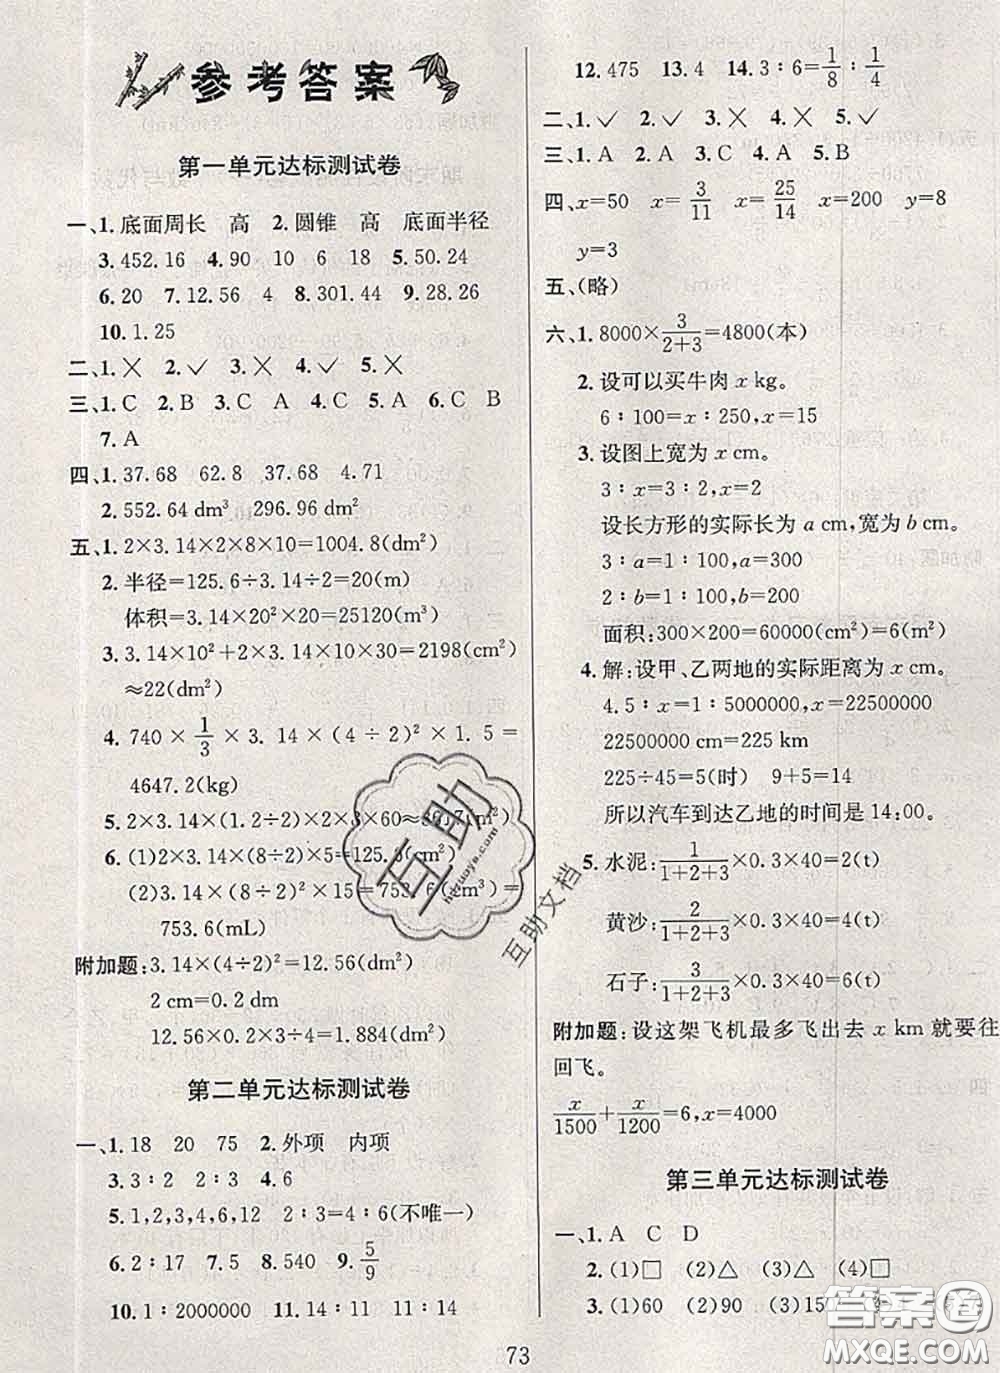 参考答案
第一单元达标测试卷
一、1.底面周长 高 2.圆锥 高 底面半径
3.452.16 4.90 10 6 18 5.50.24
6.20 7.12.56 4 8.301.44 9.28.26
10.1.25
二、1.╳ 2.✓ 3.╳ 4.✓ 5.╳
三、1.C 2.B 3.C A 4.C 5.A 6.C B
7.A
四、1.37.68 62.8 37.68 4.71
2.552.64 dm³ 296.96 dm²
五、1.2×3.14×2×8×10=1004.8(dm²)
2.半径=125.6÷3.14÷2=20(m)
体积=3.14×20²×20=25120(m³)
3.3.14×10²+2×3.14×10×30=2198(cm²)
≈22(dm²)
4. 740 × 1/3 × 3.14×(4÷2)²×1.5=
4647.2(kg)
5.2×3.14×(1.2÷2)×2×3×60≈(m²)
6.(1)2×3.14×(8÷2)×5=125.6(cm²)
(2)3.14×(8÷2)²×15=753.6(cm³)=
753.6(mL)
附加题:3.14×(4÷2)²=12.56(dm²)
2 cm=0.2 dm
12.56×0.2×3÷4=1.884(dm³)
第二单元达标测试卷
一、1.18 20 75 2.外项 内项
3.3∶2 2∶3 4.6
5.1,2,3,6 2∶3=4∶6(不唯一)
6.2 7.5 8.540 9.5/9
10.1∶2000000 11.14∶11 11∶14
12.475 13.4 14.3∶6=1/8∶1/4
二、1.✓ 2.✓ 3.╳ 4.╳ 5.✓
三、1.A 2.A 3.C 4.A 5.B
四、x=50 x=3/11 x=25/14 x=200 y=8
y=3
五、(略)
六、1.8000×3/(2+3)=4800(本)
2.设可以买牛肉 x kg。
6∶100=x∶250,x=15
3.设图上宽为 x cm。
3∶x=3∶2,x=2
设长方形的实际长为 a cm,宽为 b cm。
3∶a=1∶100,a=300
2∶b=1∶100,b=200
面积:300×200=60000(cm²)=6(m²)
4.解:设甲、乙两地的实际距离为 x cm。
4.5∶x=1∶5000000,x=22500000
22500000 cm=225 km
225÷45=5(时) 9+5=14
所以汽车到达乙地的时间是 14:00。
5.水泥:1/(1+2+3)×0.3×40=2(t)
黄沙:2/(1+2+3)×0.3×40=4(t)
石子:3/(1+2+3)×0.3×40=6(t)
附加题:设这架飞机最多飞出去 x km 就要往
回飞。
x/1500+x/1200=6,x=4000
第三单元达标测试卷
一、1.A C D
2.(1)□ (2)△ (3)△ (4)□
3.(1)60 (2)90 (3)15
73
互助
互助文档
答案圈
MXQE.COM